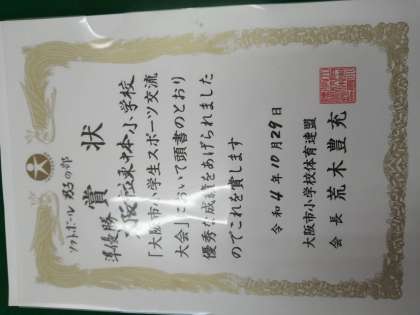 賞状
ソフトボール 男子の部
準優勝
大阪市立東中本小学校
「大阪市小学生スポーツ交流
大会」において頭書のとおり
優秀な成績をあげられました
のでこれを賞します
令和4年10月29日
大阪市小学校体育連盟
会長 荒木豊充